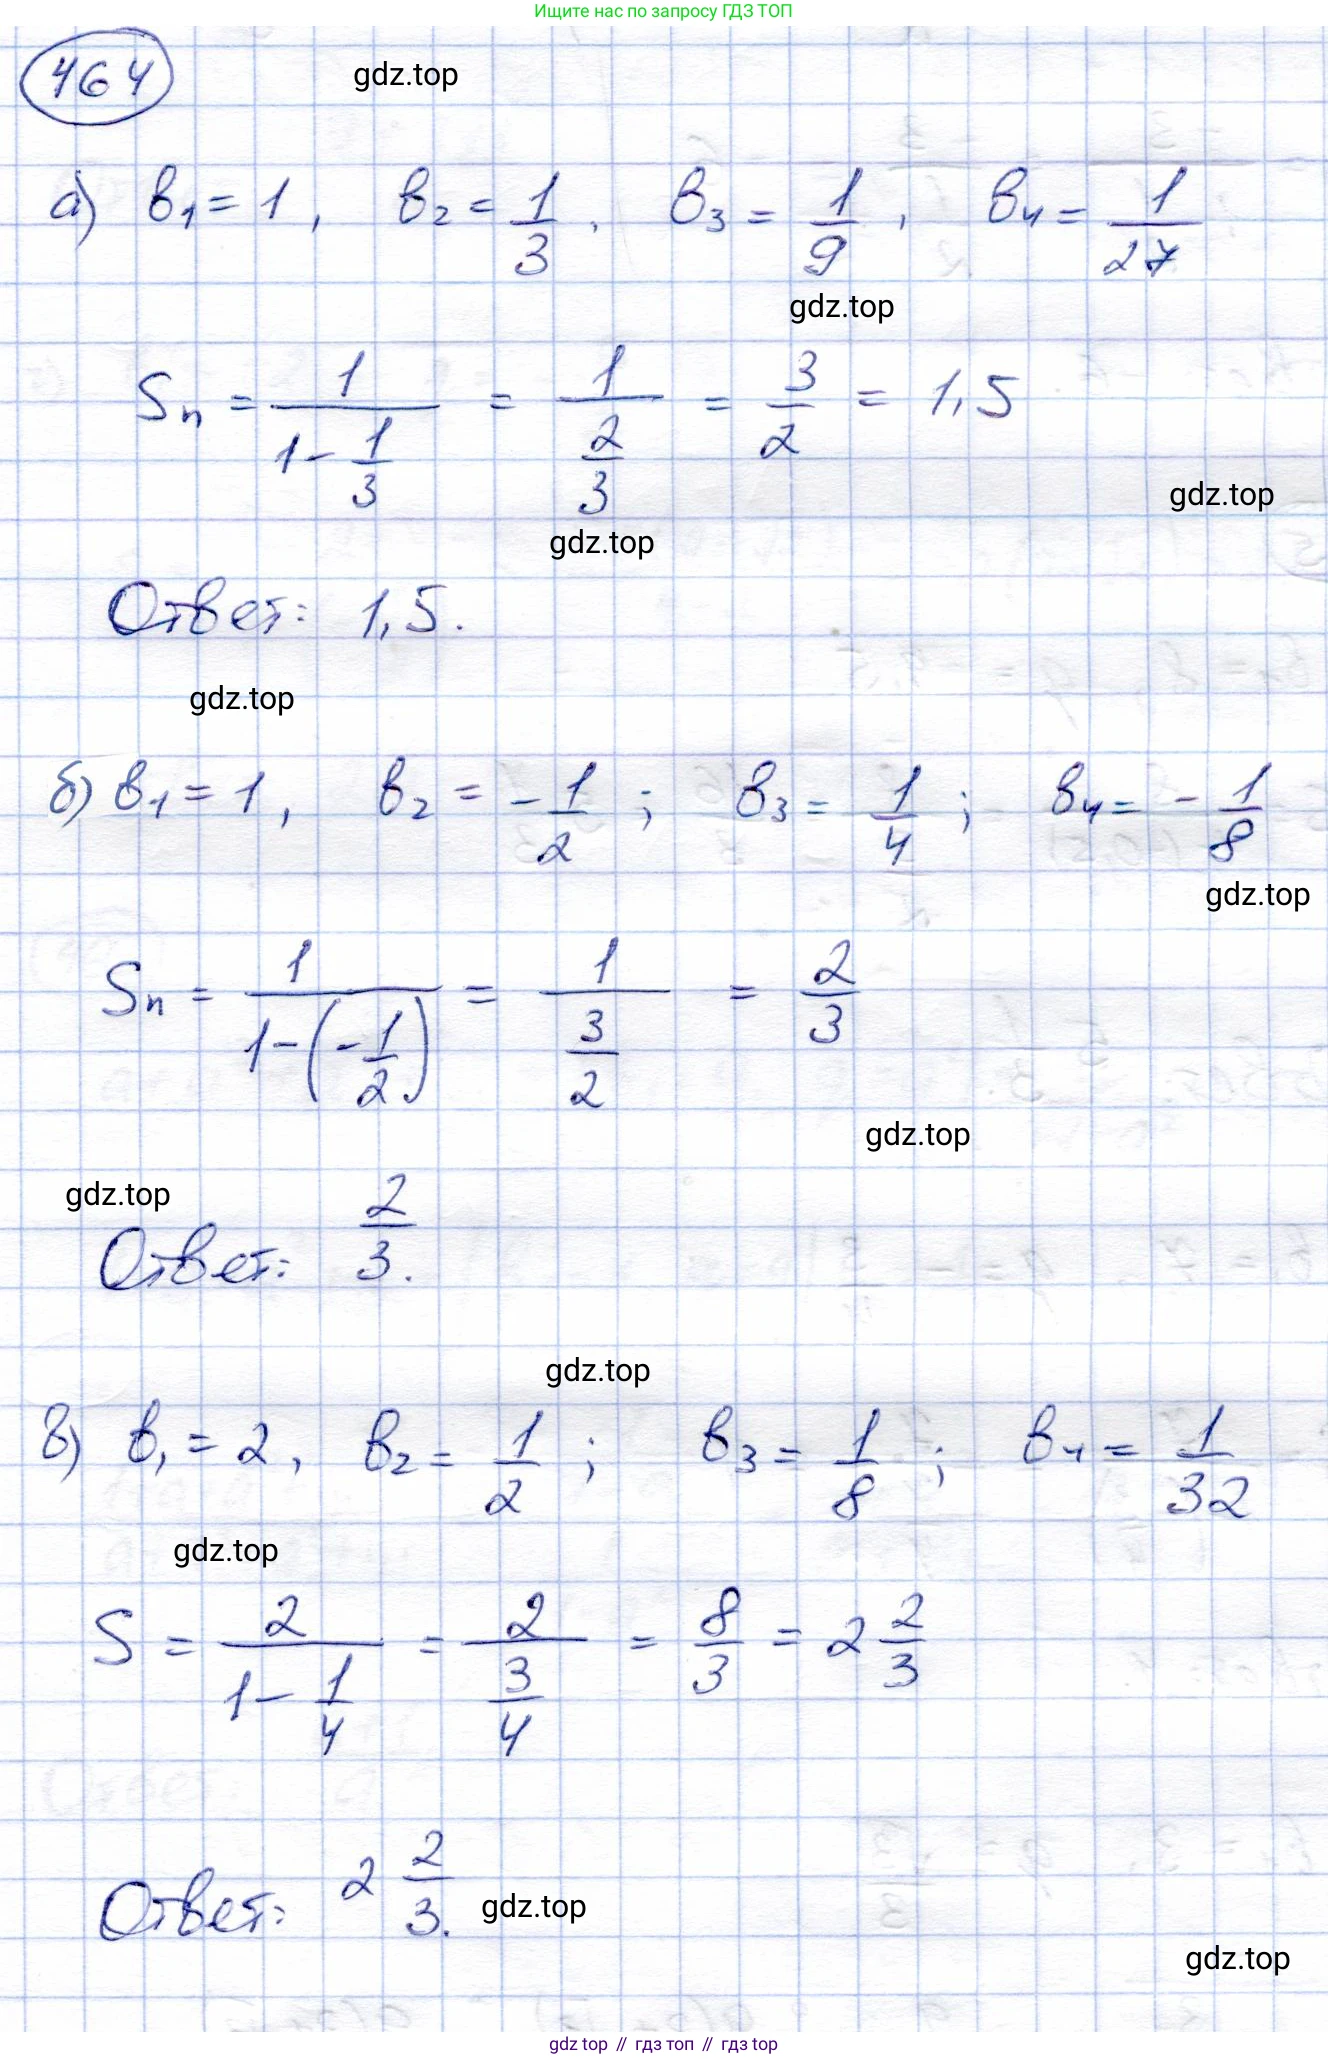 Ищите нас по запросу ГДЗ ТОП
464
gdz.top
а) b₁ = 1, b₂ = 1/3, b₃ = 1/9, b₄ = 1/27
gdz.top
Sₙ = 1/(1 - 1/3) = 1/(2/3) = 3/2 = 1,5
gdz.top
gdz.top
Ответ: 1,5.
gdz.top
б) b₁ = 1, b₂ = -1/2; b₃ = 1/4; b₄ = -1/8
gdz.top
Sₙ = 1/(1 - (-1/2)) = 1/(3/2) = 2/3
gdz.top
gdz.top
Ответ: 2/3.
gdz.top
в) b₁ = 2, b₂ = 1/2; b₃ = 1/8; b₄ = 1/32
gdz.top
S = 2/(1 - 1/4) = 2/(3/4) = 8/3 = 2 2/3
Ответ: 2 2/3.
gdz.top
gdz.top
gdz top // гдз топ // gdz top